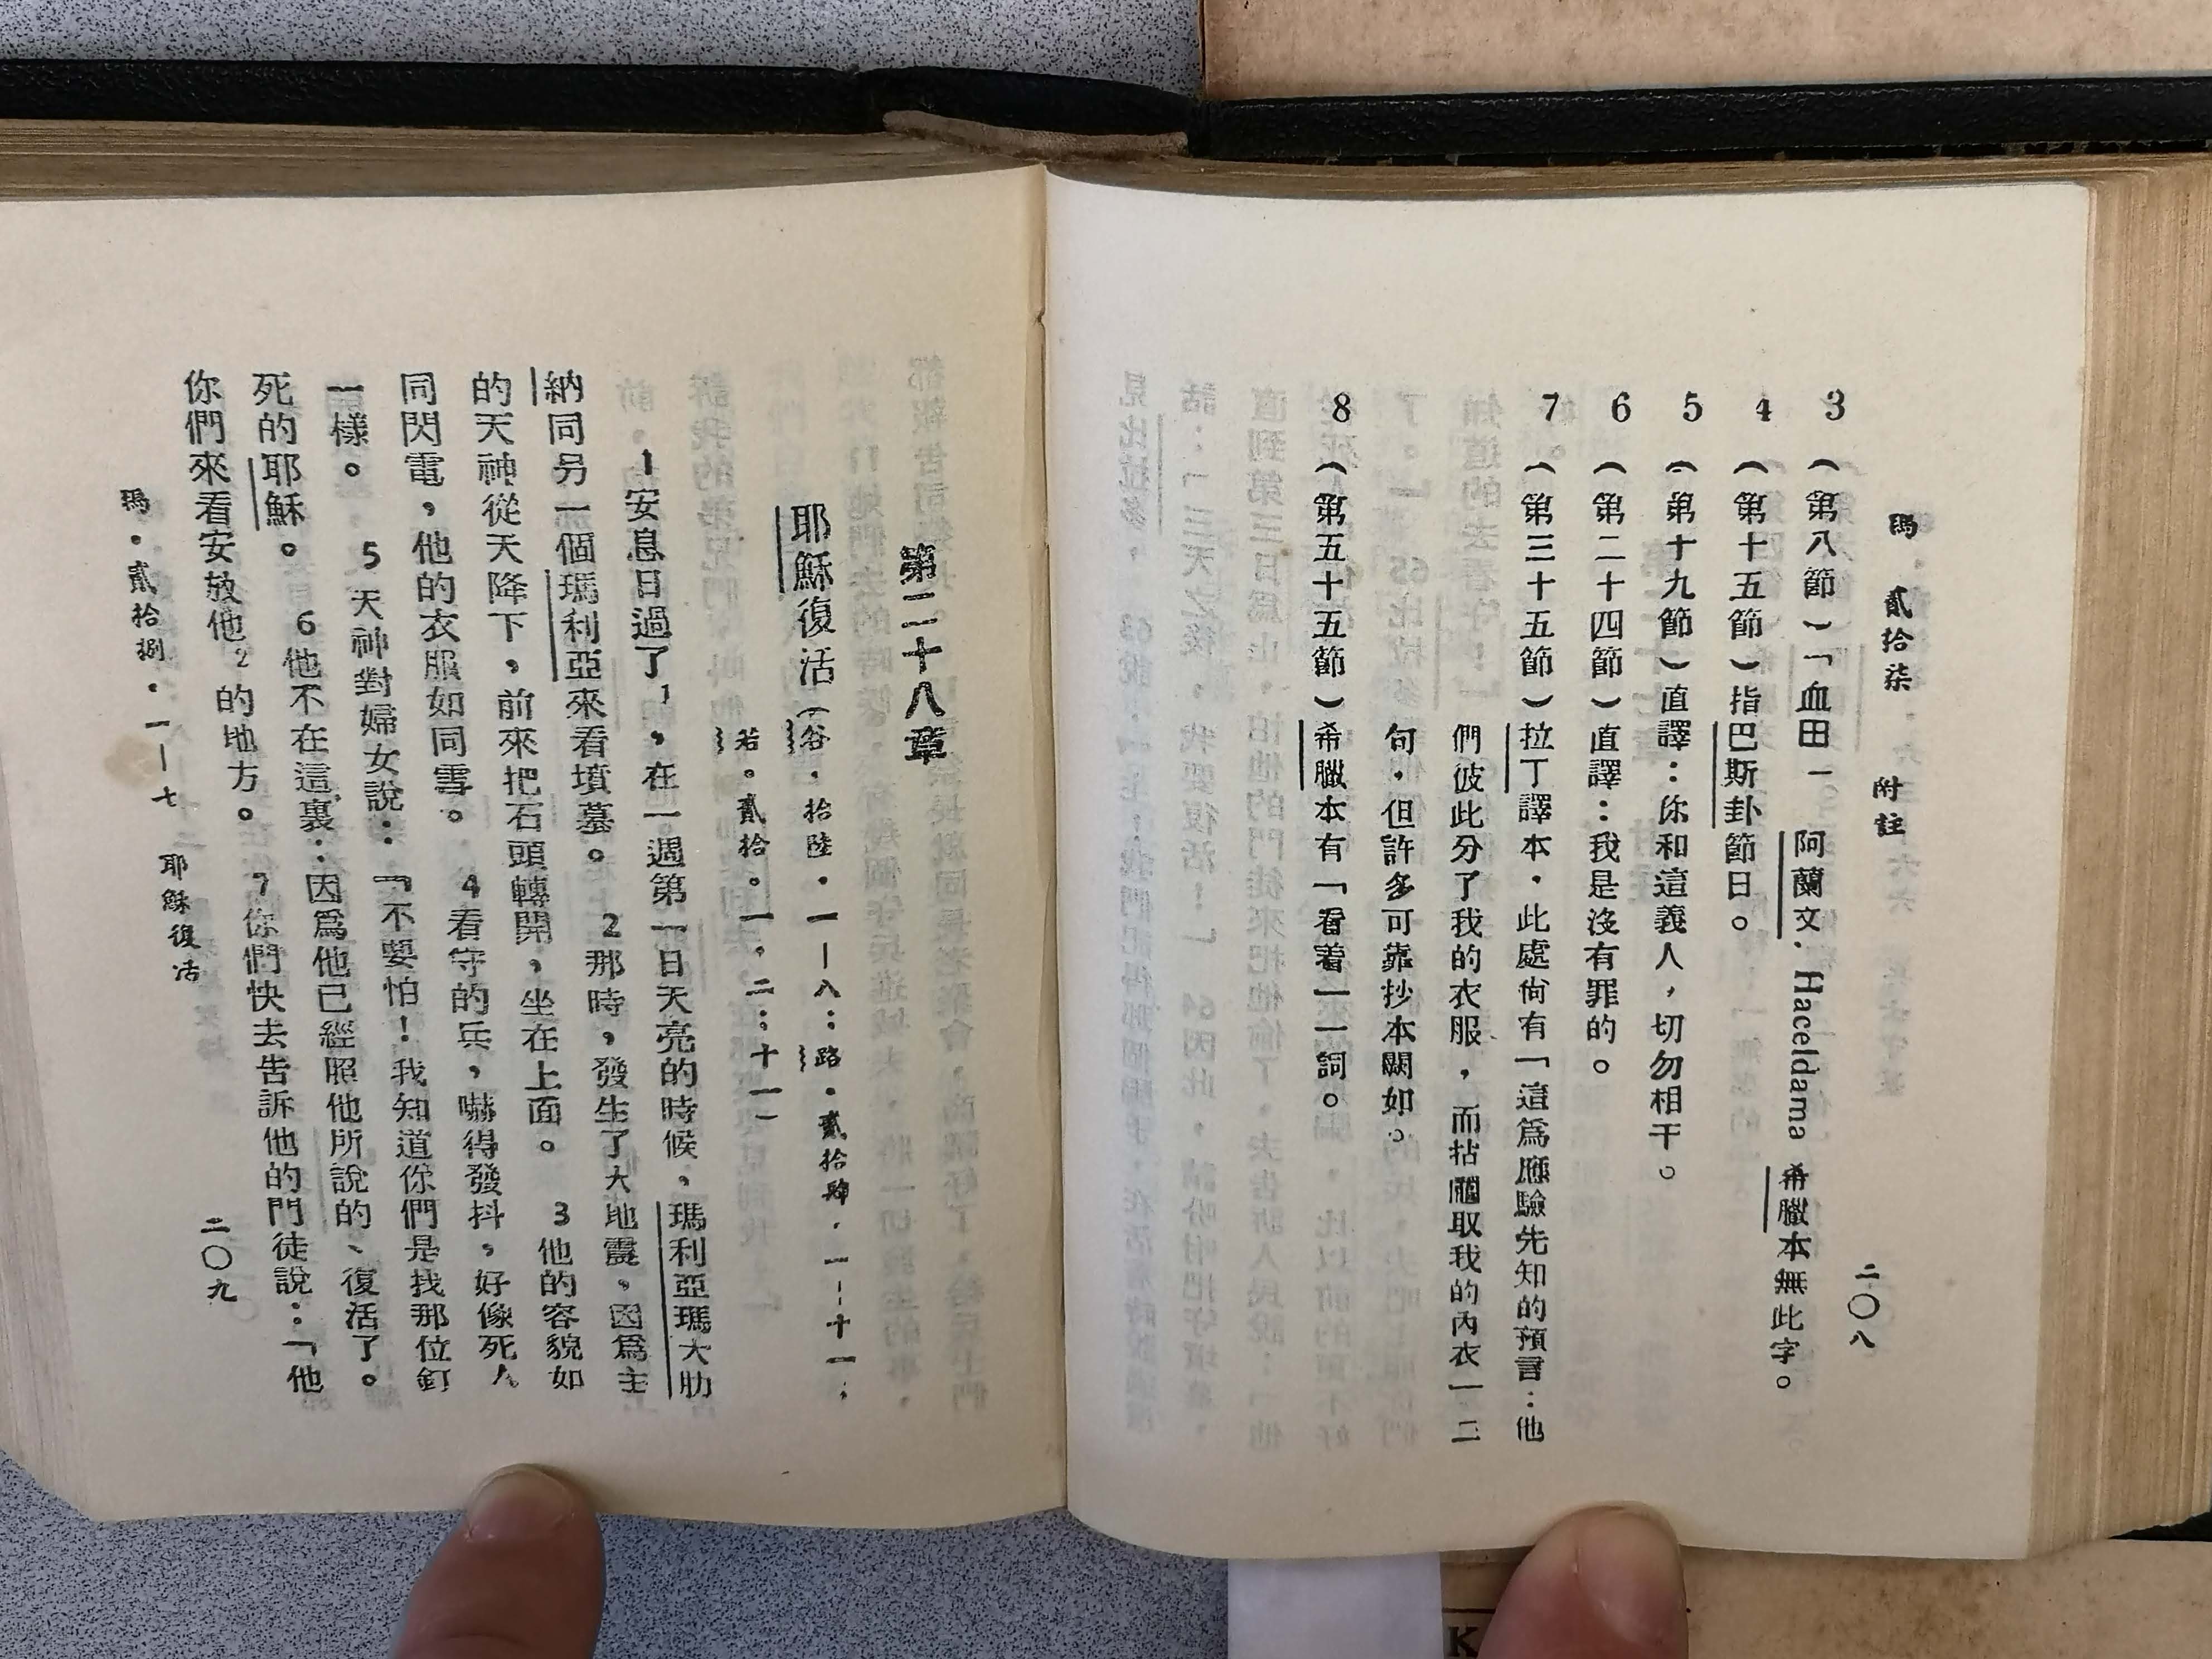 瑪 貳拾柒 附註 二〇八
3 (第八節)「血田」阿蘭文．Haceldama 希臘本無此字。
4 (第十五節)指巴斯卦節日。
5 (第十九節)直譯：你和這義人，切勿相干。
6 (第二十四節)直譯：我是沒有罪的。
7 (第三十五節)拉丁譯本．此處尙有「這爲應驗先知的預言：他
們彼此分了我的衣服，而拈鬮取我的內衣」二
句．但許多可靠抄本闕如。
8 (第五十五節)希臘本有「看着」一詞。
第二十八章
耶穌復活(谷．拾陸．一—八；路．貳拾肆．一—十一；
若．貳拾．一，二；十一)
1 安息日過了1，在一週第一日天亮的時候，瑪利亞瑪大肋
納同另一個瑪利亞來看墳墓。2 那時，發生了大地震，因爲主
的天神從天降下，前來把石頭轉開，坐在上面。3 他的容貌如
同閃電，他的衣服如同雪。4 看守的兵，嚇得發抖，好像死人
一樣。5 天神對婦女說：「不要怕！我知道你們是找那位釘
死的耶穌。6 他不在這裏：因爲他已經照他所說的、復活了。
你們來看安放他2的地方。7 你們快去告訴他的門徒說：「他
瑪．貳拾捌．一—七 耶穌復活 二〇九
K